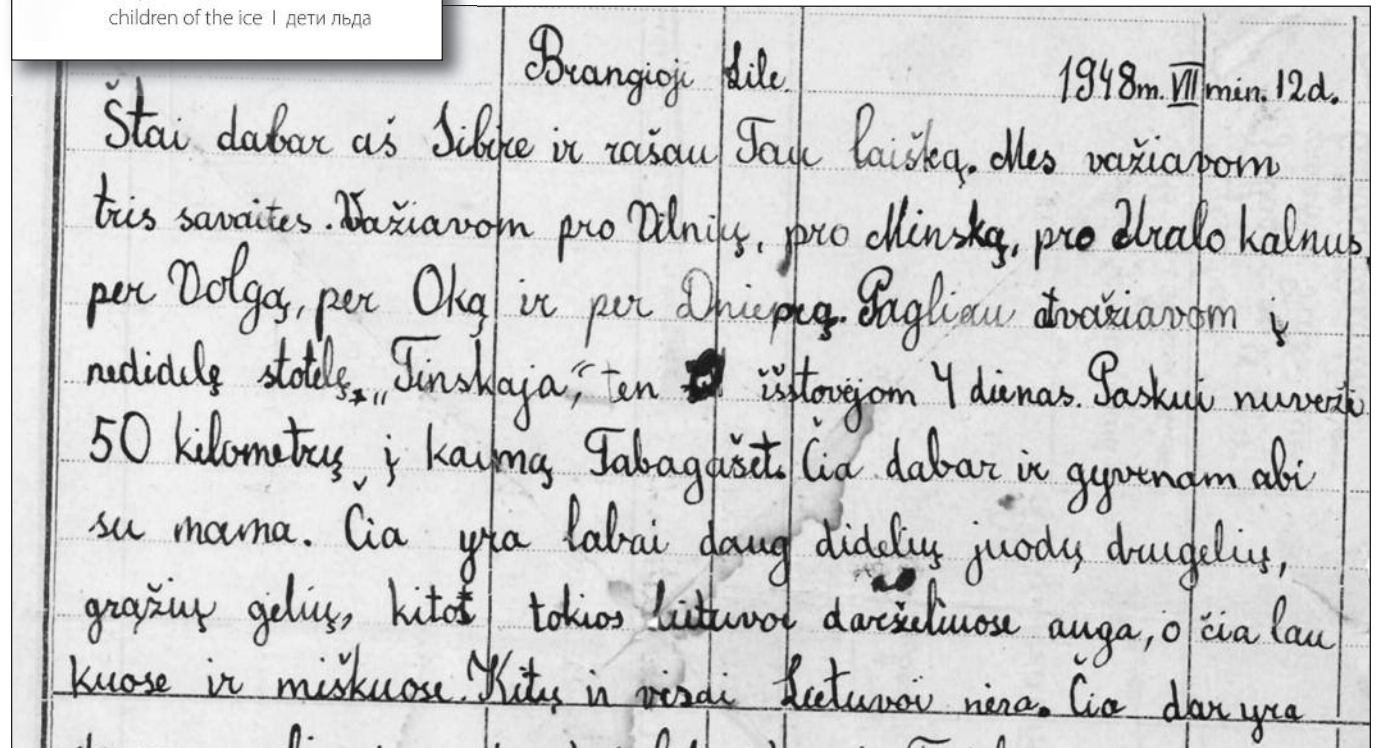 children of the ice | дети льда
Brangioji Lile. 1948m. VII mėn. 12d.
Štai dabar aš Sibire ir rašau Tau laišką. Mes važiavom
tris savaites. Važiavom pro Vilnių, pro Minską, pro Uralo kalnus,
per Volgą, per Oką ir per Dnieprą. Pagliau atvažiavom į
nedidelę stotelę, „Tinskaja,“ ten išstovėjom 4 dienas. Paskui nuvežė
50 kilometrų į kaimą Tabagašet. Čia dabar ir gyvenam abi
su mama. Čia yra labai daug didelių juodų drugelių,
gražių gėlių, kitos tokios Lietuvoi darželiuose auga, o čia lau
kuose ir miškuose. Kitų ir visai Lietuvoi nėra. Čia dar yra